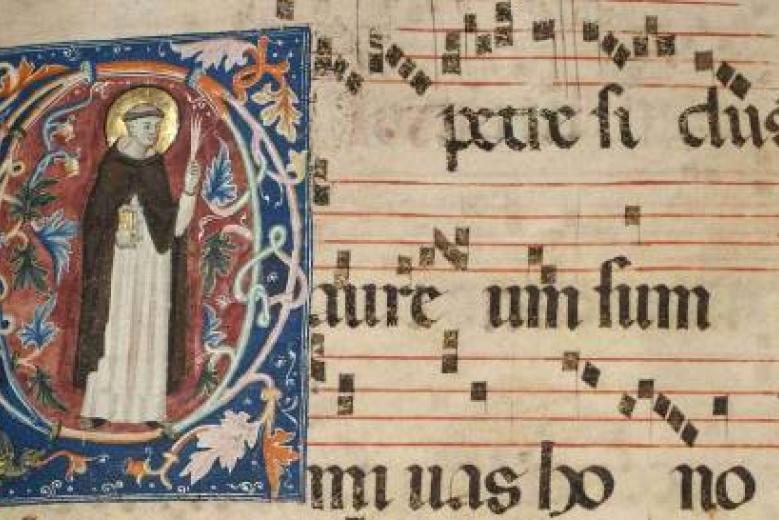 petre si dus
aure um sum
mi uas ho no